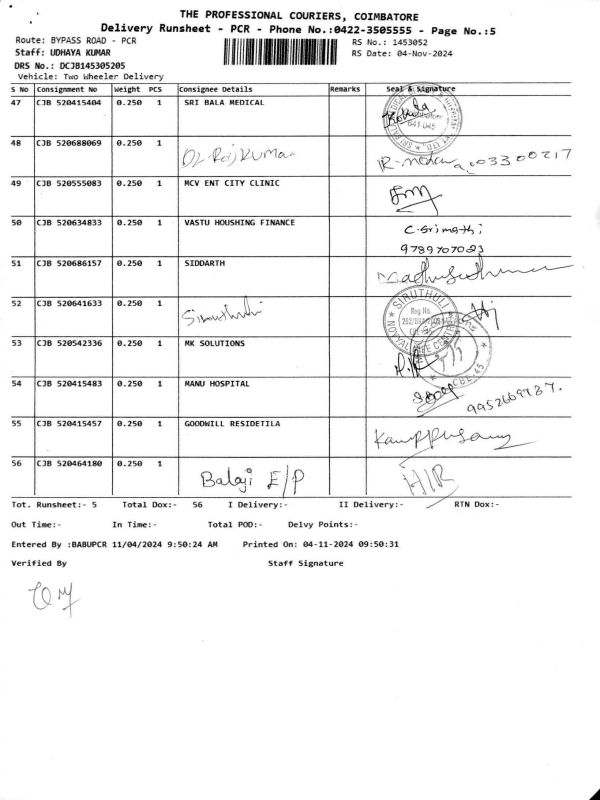 THE PROFESSIONAL COURIERS, COIMBATORE
Delivery Runsheet - PCR - Phone No.:0422-3505555 - Page No.:5
Route: BYPASS ROAD - PCR
RS No.: 1453052
Staff: UDHAYA KUMAR
RS Date: 04-Nov-2024
DRS No.: DCJB145305205
Vehicle: Two Wheeler Delivery
S No Consignment No Weight PCS Consignee Details Remarks Seal & Signature
47 CJB 520415404 0.250 1 SRI BALA MEDICAL
48 CJB 520688069 0.250 1 Dr Rajkumar
49 CJB 520555083 0.250 1 MCV ENT CITY CLINIC
50 CJB 520634833 0.250 1 VASTU HOUSHING FINANCE C. Srimathi
9789707023
51 CJB 520686157 0.250 1 SIDDARTH
52 CJB 520641633 0.250 1 SIRUTHULI
53 CJB 520542336 0.250 1 MK SOLUTIONS
54 CJB 520415483 0.250 1 MANU HOSPITAL 9952669787.
55 CJB 520415457 0.250 1 GOODWILL RESIDETILA
56 CJB 520464180 0.250 1 Balaji E/P H/R
Tot. Runsheet:- 5 Total Dox:- 56 I Delivery:- II Delivery:- RTN Dox:-
Out Time:- In Time:- Total POD:- Delvy Points:-
Entered By :BABUPCR 11/04/2024 9:50:24 AM Printed On: 04-11-2024 09:50:31
Verified By Staff Signature